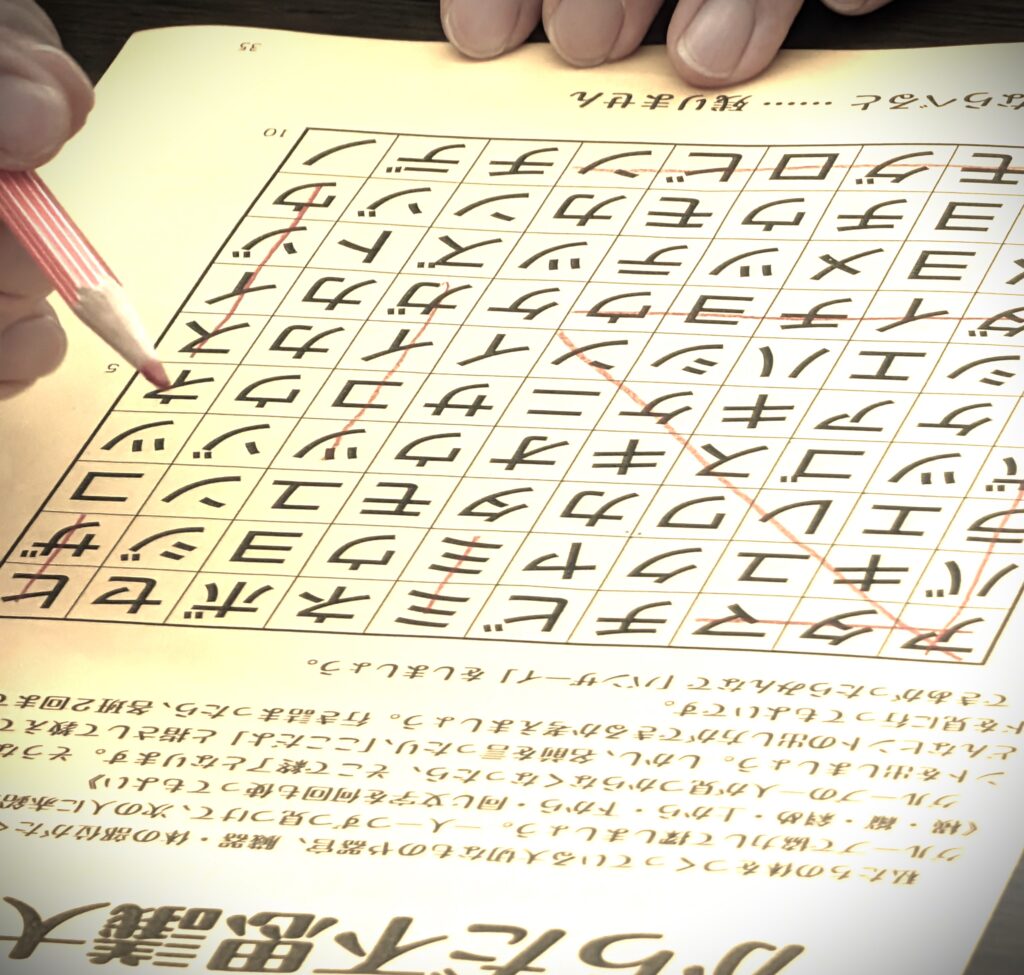 からだ不思議大
私たちの体をつくっている大切なものや器官、臓器、体の部位がたく
グループで協力して探しましょう。一人一つずつ見つけて、次の人に赤鉛
《横・縦・斜め・上から・下から・同じ文字を何回も使ってもよい》
グループの一人が見つからなくなったら、そこで終了となります。そうな
ントを出しましょう。しかし、名前を言ったり、「ここだよ」と指さして教えて
どんなヒントの出し方ができるか考えましょう。行き詰まったら、各班2回まで
ドを見に行ってもよいです。
できあがったらみんなで「バンザーイ」をしましょう。
アタマチビミネボセヒ
バキユクヤミウヨジザ
ラエレワカタモユンコ
ツゴスキオウツゾツ
ケアキケニサコウネ 5
シエハシンイイカス
ダイチヨウケガカイ
ヨメツテツズトジ
ヨチウモカンゾウ
モグロビンチデノ 10
ならべると …… 残りません
35